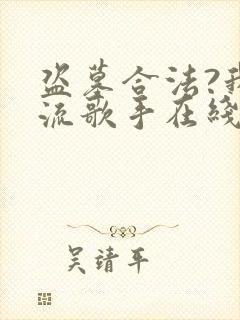 盗墓合法?我
流歌手在线
吴靖平